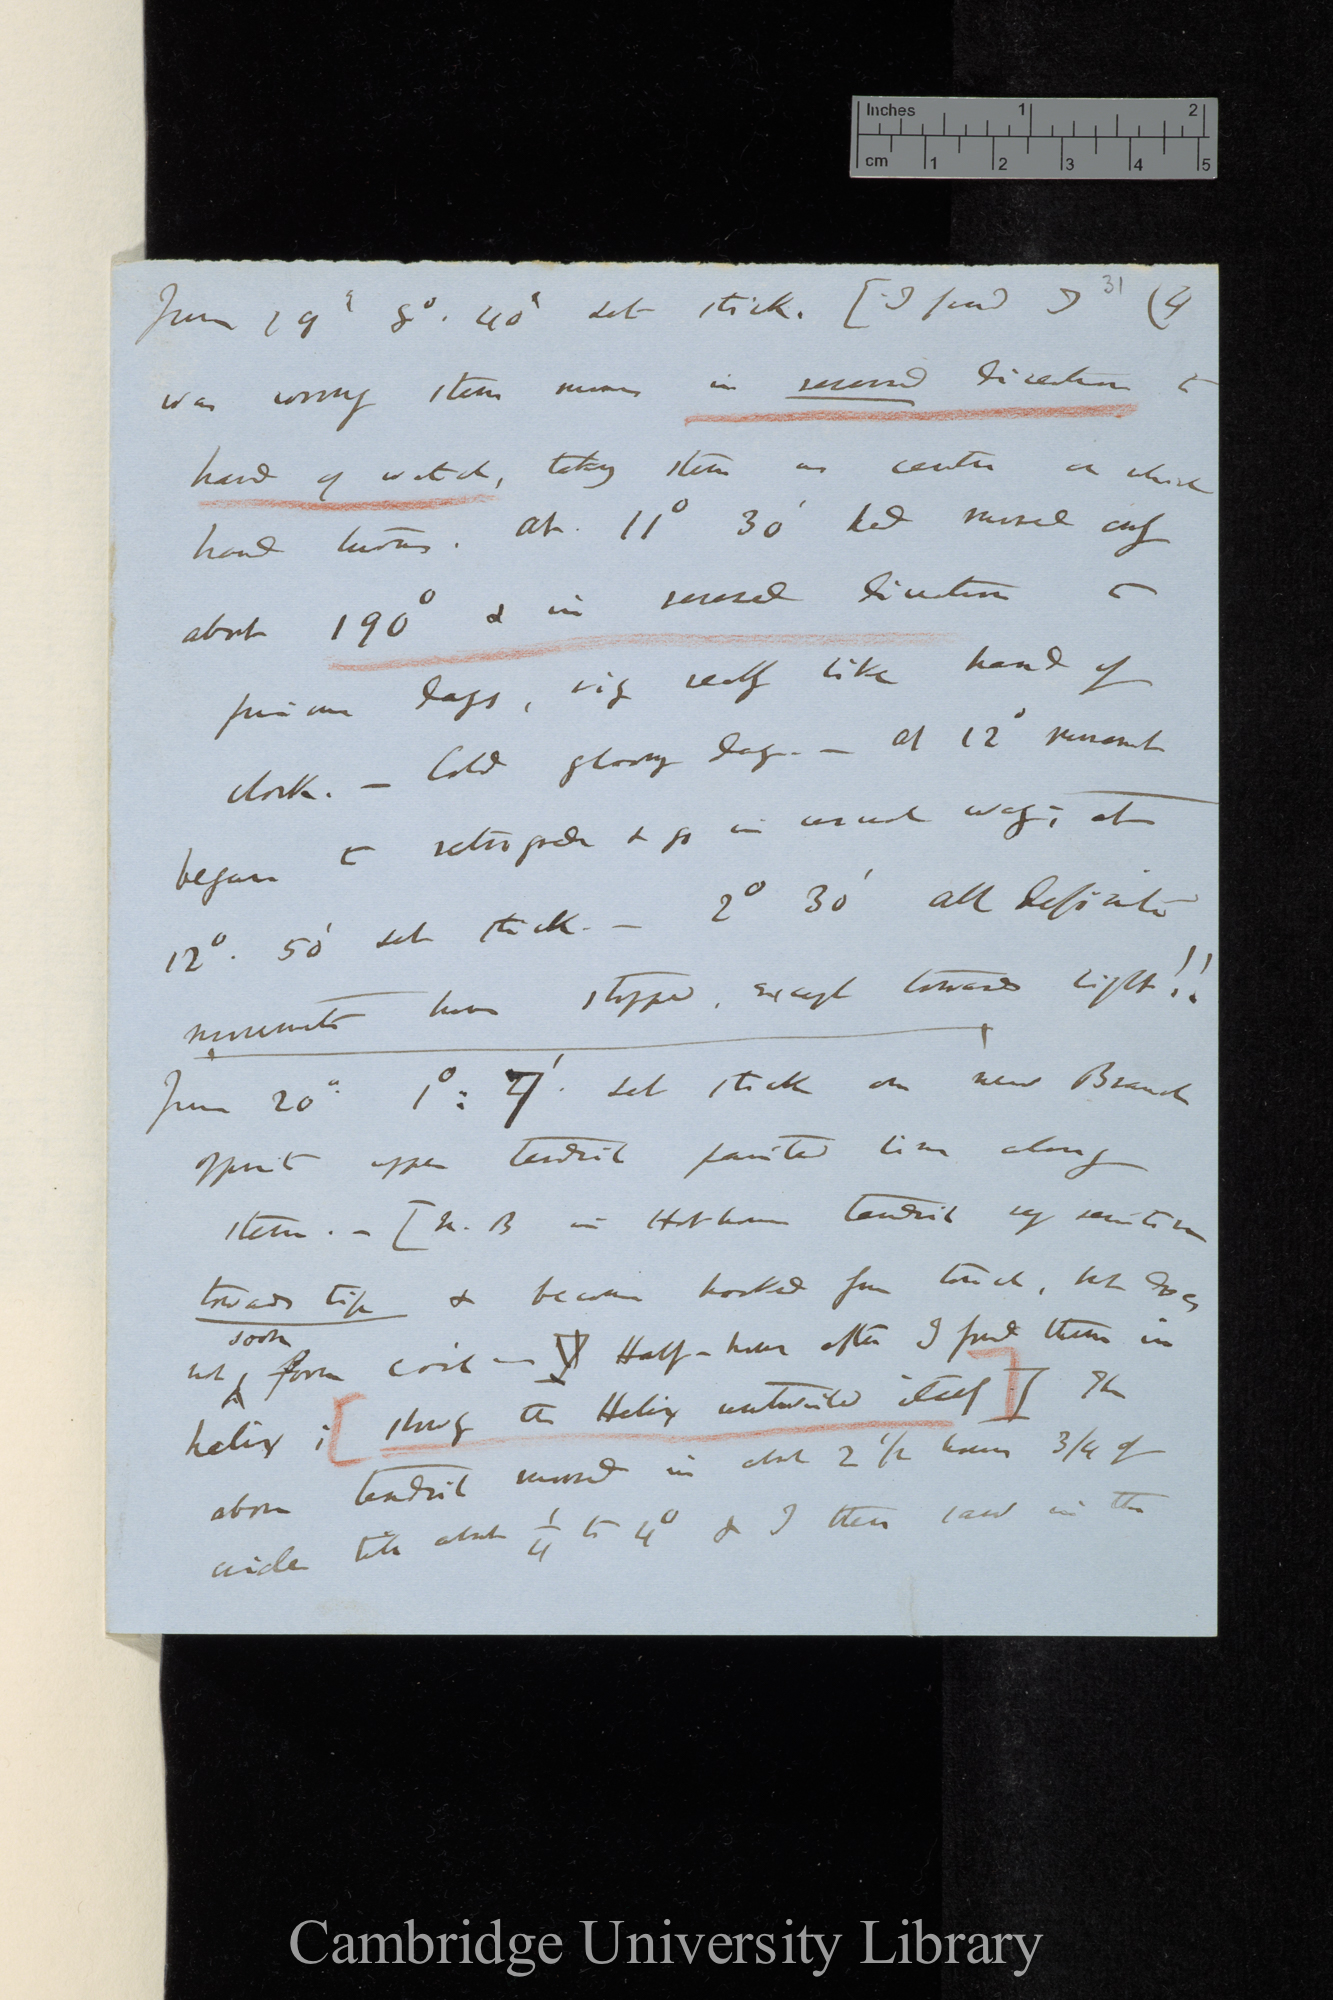 Inches 1 2
cm 1 2 3 4 5
31
June 19th 8°. 40' set stick. [I find I (4
was wrong stem moves in reversed direction to
hand of watch, taking stem as centre on which
hand turns. At 11° 30' had moved only
about 190° & in reversed direction to
previous days, viz really like hand of
clock. — Cold gloomy day. — at 12° movement
began to retrograde & go in usual way; at
12°. 50' set stick. — 2° 30' all definite
movements have stopped, except towards light!!
June 20th 1°: set stick on new Branch
opposite upper tendril painted line along
stem. — [N.B in Hothouse tendril very sensitive
towards tip & become hooked from touch, but does
soon
not form coil — Half-hour after I find them in
helix; [slowly the Helix untwisted itself] The
above tendril moved in about 2 1/2 hours 3/4 of
circle till about 1/4 to 4° & I then saw in the
Cambridge University Library